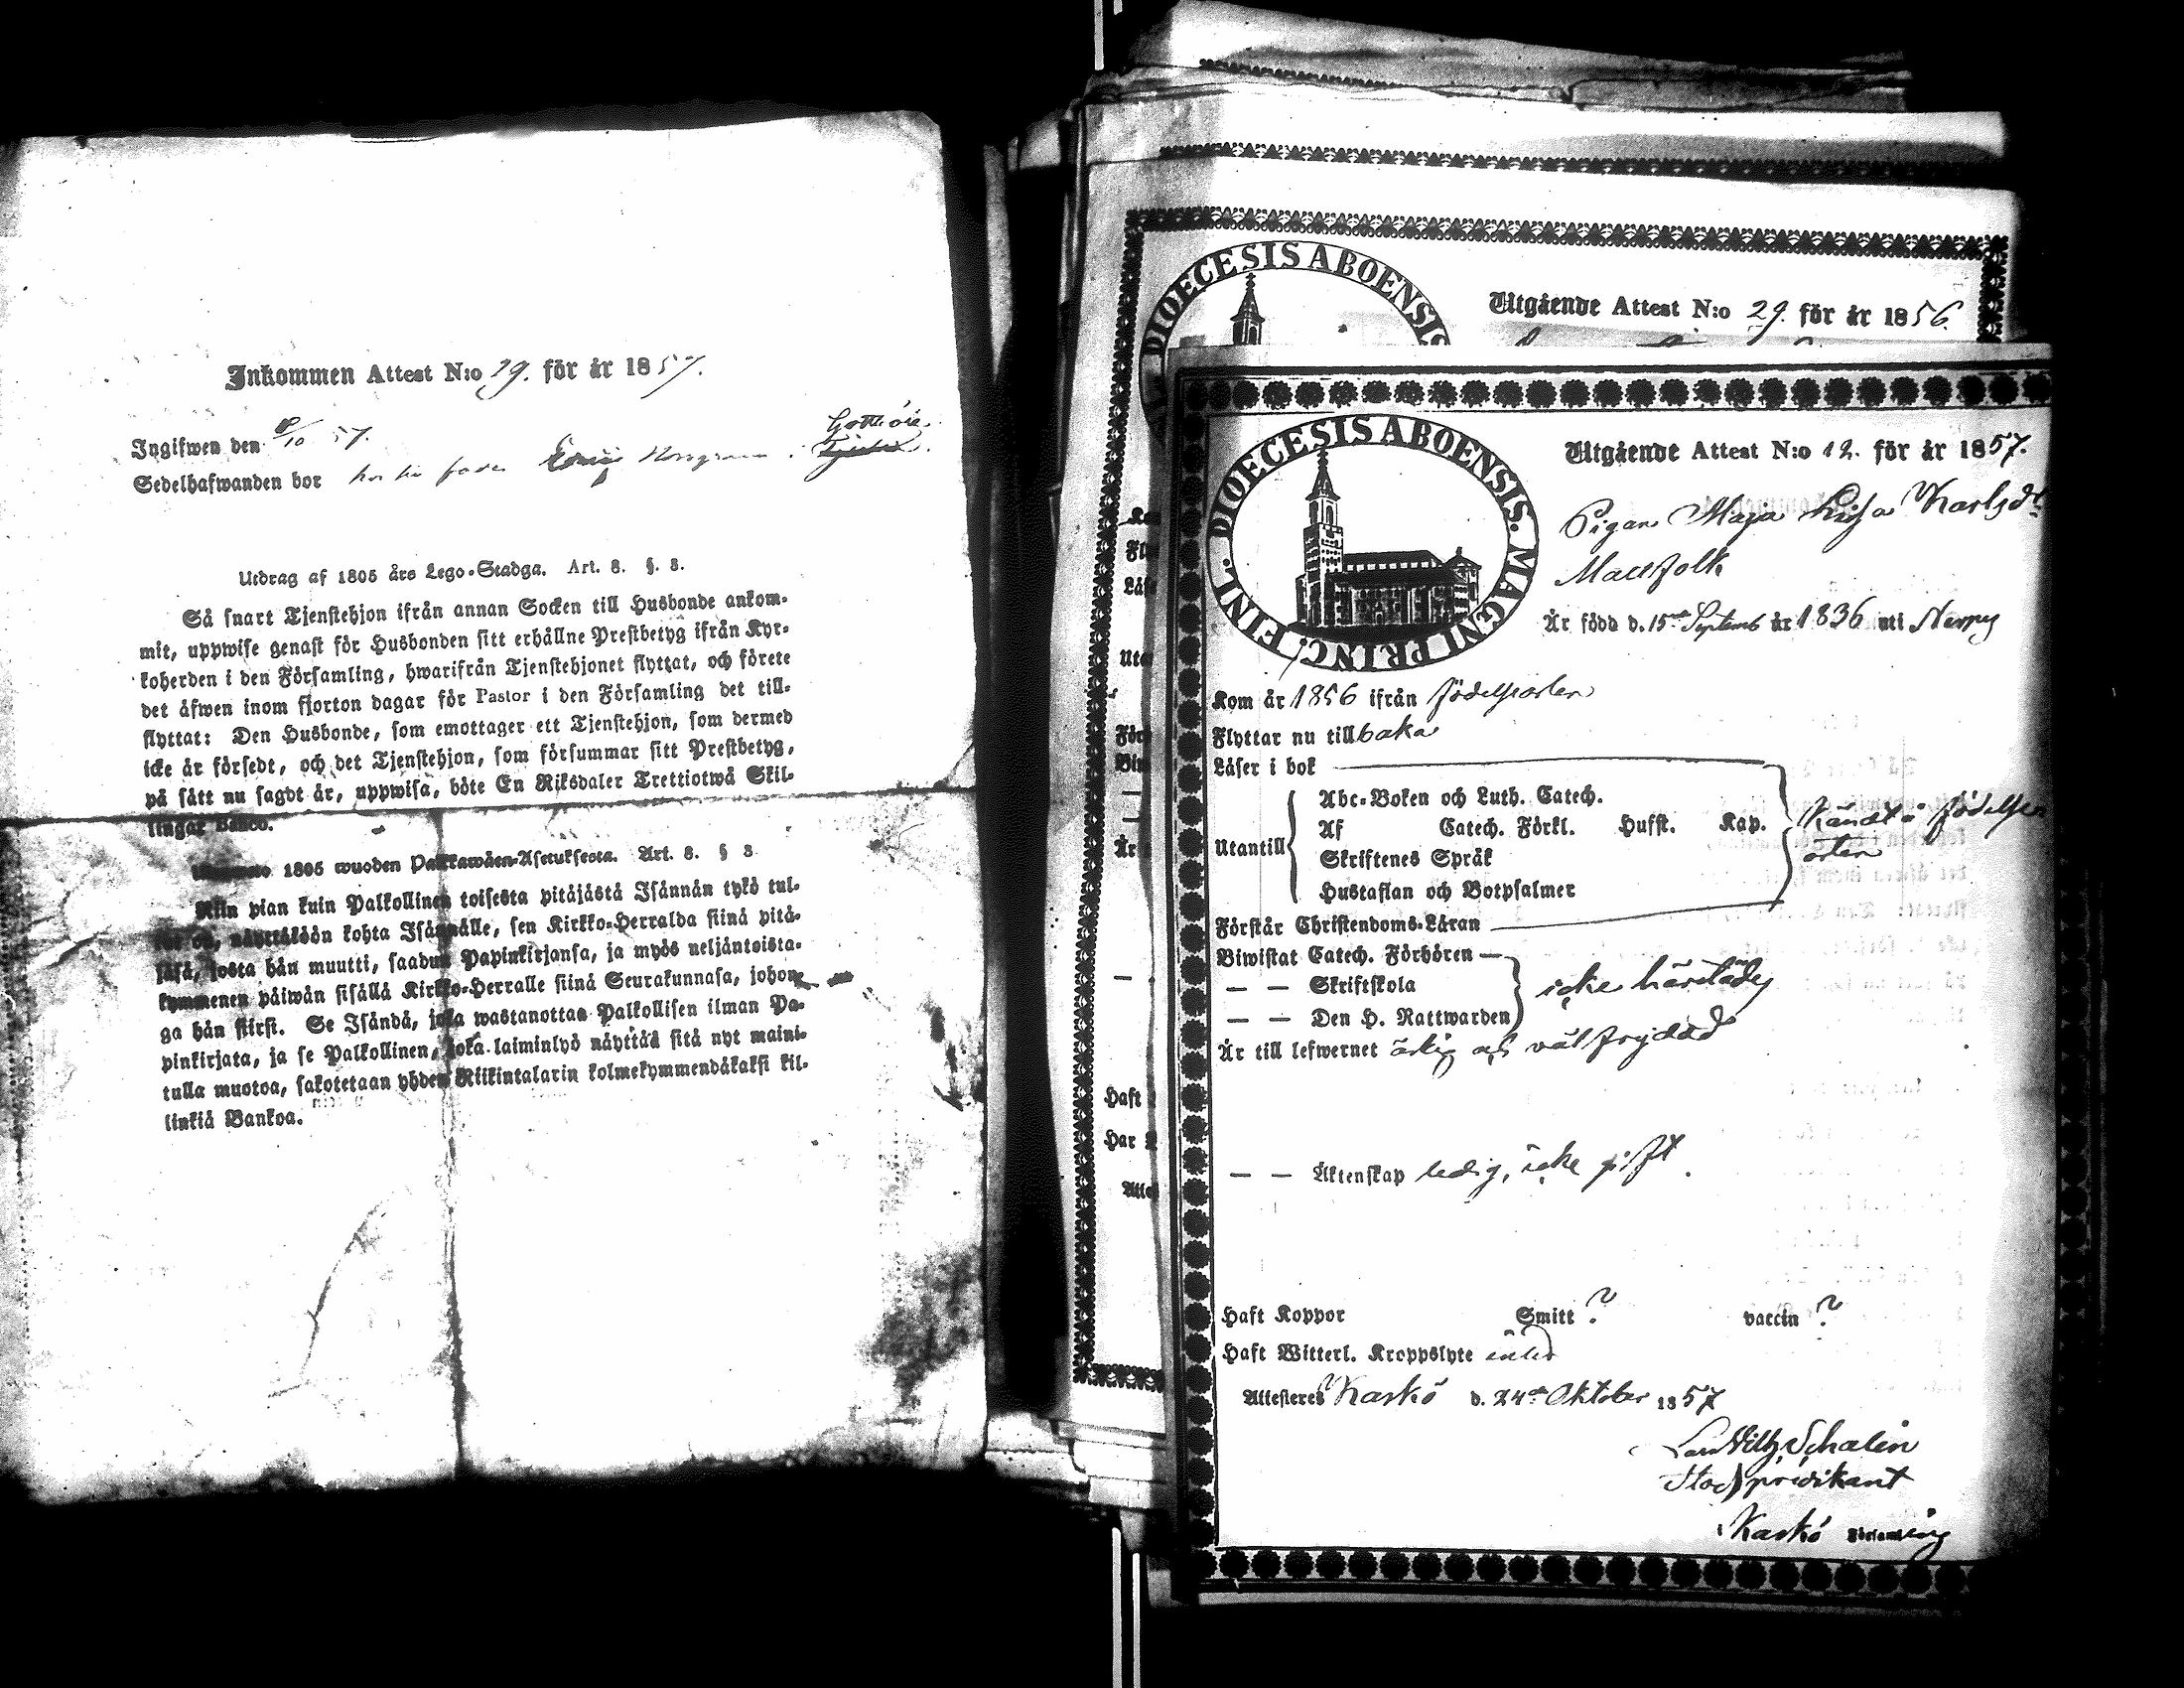 Inkommen Attest N:o 29. för år 1857.
Ingifwen den /10 57.
Sedelhafwanden bor hos sin fader
Utdrag af 1805 års Lego-Stadga. Art. 8. §. 8.
Så snart Tjenstehjon ifrån annan Socken till Husbonde ankom-
mit, uppwise genast för Husbonden sitt erhållne Prestbetyg ifrån Kyr-
koherden i den Församling, hwarifrån Tjenstehjonet flyttat, och förete
det äfwen inom fjorton dagar för Pastor i den Församling det till-
flyttat: Den Husbonde, som emottager ett Tjenstehjon, som dermed
icke är försedt, och det Tjenstehjon, som försummar sitt Prestbetyg,
på sätt nu sagdt är, uppwisa, böte En Riksdaler Trettiotwå Skil-
lingar Banco.
1805 wuoden Palkkawäen-Asetuksesta. Art. 8. § 8
Niin pian kuin Palkollinen toisesta pitäjästä Isännän tykö tul-
lut on, näyttäköön kohta Isännälle, sen Kirkko-Herralda siinä pitä-
jäsä, josta hän muutti, saadun Papinkirjansa, ja myös neljäntoista-
kymmenen päiwän sisällä Kirkko-Herralle siinä Seurakunnasa, johon-
ga hän siirsi. Se Isändä, joka wastanottaa Palkollisen ilman Pa-
pinkirjata, ja se Palkollinen, joka laiminlyö näyttää sitä nyt maini-
tulla muotoa, sakotetaan yhden Riikintalarin kolmekymmendäkaksi kil-
linkiä Bankoa.
DIOECESIS ABOENSIS
Utgående Attest N:o 29. för år 1856.
DIOECESIS ABOENSIS. MAGNI PRINC. FINL.
Utgående Attest N:o 12. för år 1857.
Pigan Maja Lisa Karlsdr
Mattfolk
Är född d. 15de Septemb år 1836 uti Nerpes
Kom år 1856 ifrån födelseorten
Flyttar nu tillbaka
Läser i bok
Utantill
Abc-Boken och Luth. Catech.
Af Catech. Förkl. Husst. Kap.
Skriftenes Språk
Hustaflan och Botpsalmer
Kändt i födelse
orten
Förstår Christendoms-Läran
Biwistat Catech. Förhören
— — Skriftskola
— — Den H. Nattwarden
icke härstädes
Är till lefwernet ärlig och väl frejdad
— — Äktenskap ledig, icke gift.
Haft Koppor Smitt ? vaccin ?
Haft Witterl. Kroppslyte intet
Attesteres Kaskö d. 24de Oktober 1857
Lars Wilh. Schalin
Stadspredikant
i Kaskö Församling